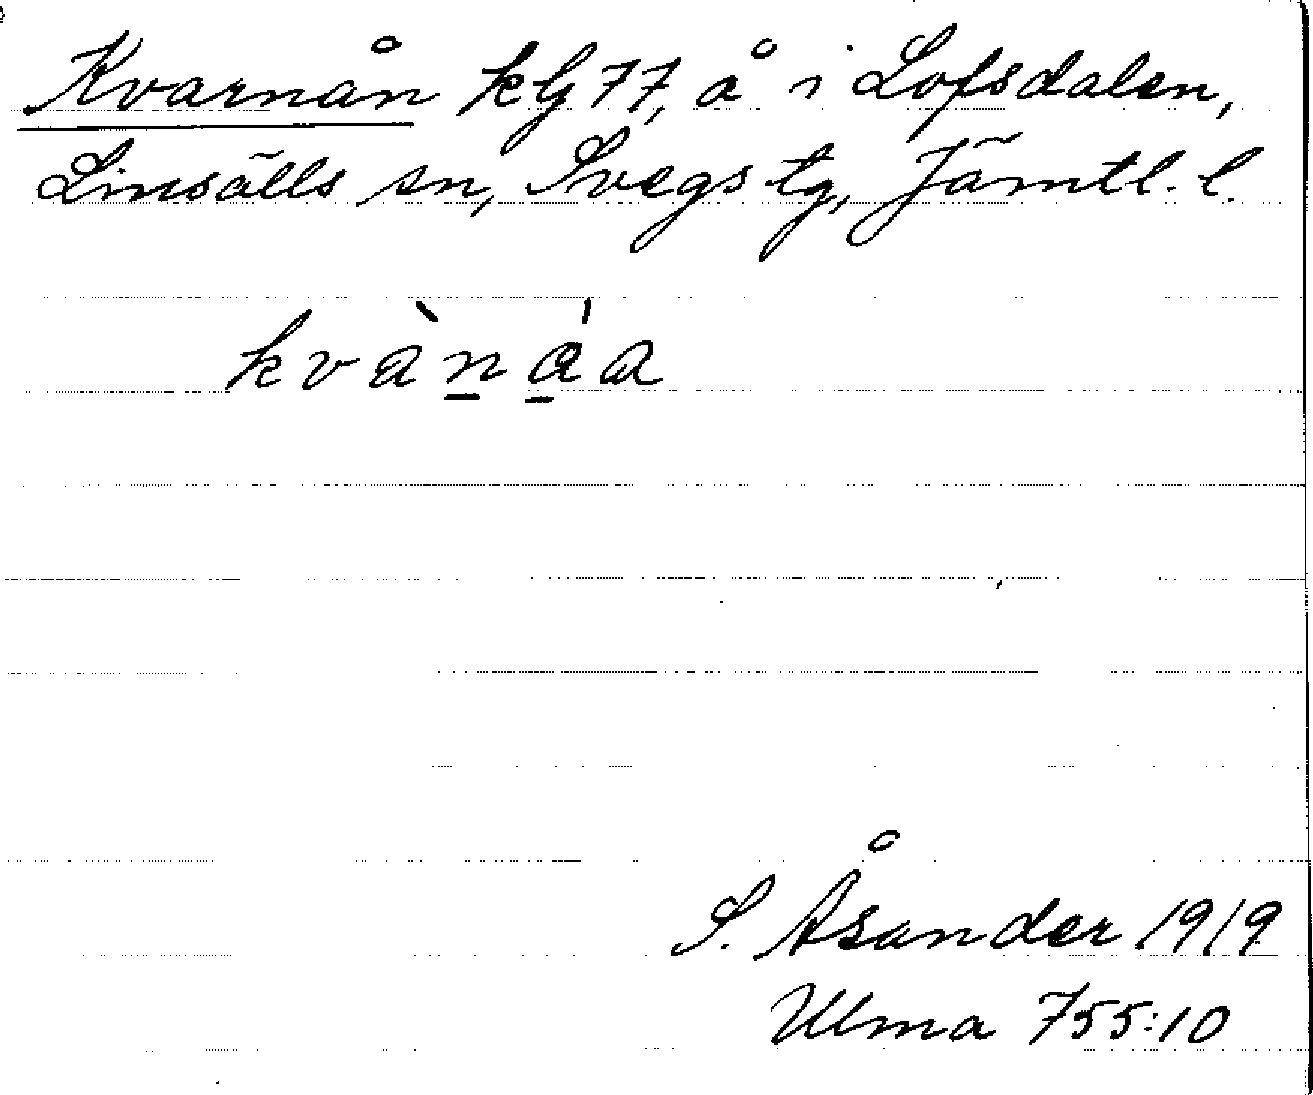 Kvarnån kG77, å i Lofsdalen,
Linsälls sn, Svegs tg, Jämtl. l.
kvànåa
S. Åsander 1919
Ulma 755:10